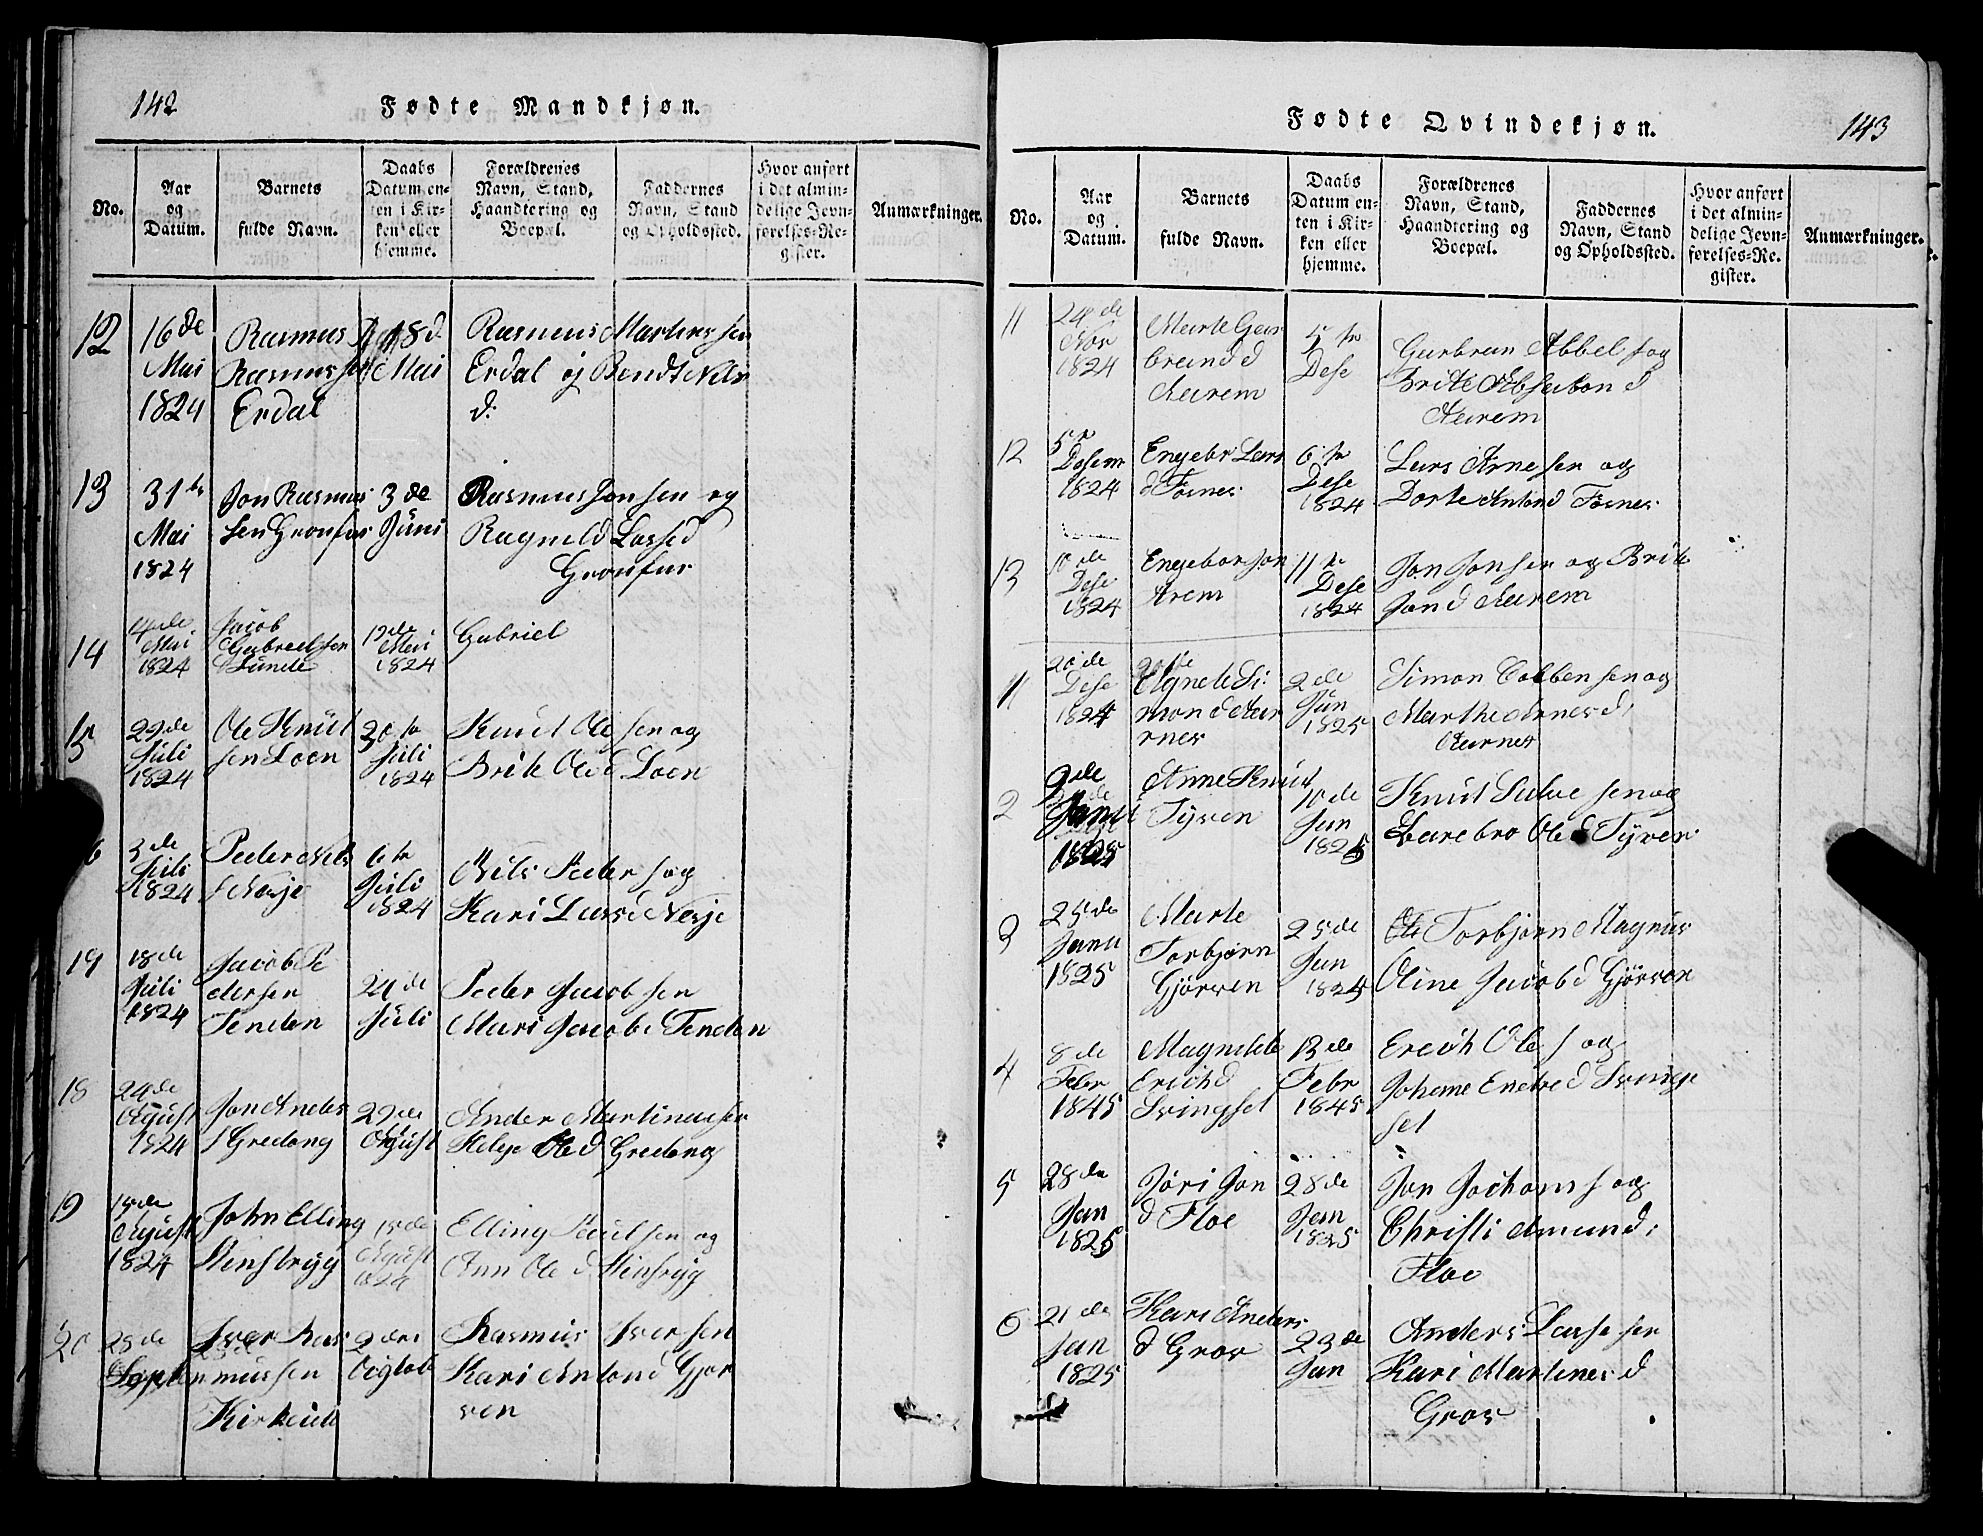 142
Fødte Mandkjøn.
No.
Aar
og
Datum.
Barnets
fulde Navn.
Daabs
Datum en-
ten i Kir-
ken eller
hjemme.
Forældrenes
Navn, Stand,
Haandtering og
Boepæl.
Faddernes
Navn, Stand
og Opholdssted.
Hvor anført
i det almin-
delige Jevn-
førelses-Re-
gister.
Anmærkninger.
12
16 de
Mai
1824
Rasmus
Rasmussen
Erdal
18 d
Mai
Rasmus Martenssen
Erdal og Bendt Nels
d:
13
31
Mai
1824
Jon Rasmus
sen
3 de
Juni
Rasmus Jonsen og
Ragneld Lassed
14
14de
Mai
1824
Jacob
Gabrielsen
Sunde
Mai
1824
Gabriel
15
22de
Juli
1824
Ole Knut
sen Loen
Juli
1824
Knut Ole sen og
Brite Ole d Loen
3 de
Juli
1824
Peder Nels
s Nesje
6 te
Juli
1824
Nils Peder s og
Kari Lasse d Nesje
18 de
Juli
1824
Jacob Pe
dersen
Tenden
24 de
Juli
Peder Jacob sen
Mari Jacobs Tenden
18
24de
Agust
1824
Jon Anders
s Gredeng
29 de
Agust
Ander Martinussen
Ole d Gredeng
19
15de
Agust
1824
John Elling
15 de
Agust
1824
Elling Paulsen og
Ann Ole d
20
25 de
Septem
Iver Ras
mussen
2den
Rasmus Iversen
Kari Anton d Gjør
ven
143
Fødte Qvindekjøn.
No.
Aar
og
Datum.
Barnets
fulde Navn.
Daabs
Datum en-
ten i Kir-
ken eller
hjemme.
Forældrenes
Navn, Stand,
Haandtering og
Boepæl.
Faddernes
Navn, Stand
og Opholdssted.
Hvor anført
i det almin-
delige Jevn-
førelses-Re-
gister.
Anmærkninger.
11
24 de
Nov
1824
Marte Gur
brand d
Aarem
5 te
Dese
Gurbran Abbel s og
Brite Absalon d
Aarem
12
5 te
Desem
1824
Engebr Lars
d Tornes
6 te
Dese
1824
Lars Arnesen og
Dorte Anton d Tornes
13
10 de
Dese
1824
Engebor Jon
Arem
11 te
Dese
1824
Jon Jonsen og Brite
Jon d Aarem
20 de
Dese
1824
Agnete Si
mon d Aar
rnes
2 de
Jan
1825
Simon Cobbensen og
Marthe Arnes d
Aarnes
2
9 de
Janu
1825
Anne Knud
Tyven
10 de
Jan
1825
Knut sen og
Ole d Tyven
3
25 de
Janu
1825
Marte
Torbjørn
Gjørven
25 de
Jan
1825
Torbjørn Magnus
Oline Jacob d Gjørven
4
8 de
Febr
1845
Magnilde
Erich d
Svingset
13 de
Febr
1845
Erich Ole s og
Johane Endre d Svinge
set
5
28 de
Jan
1825
Jøri Jon
d Floe
28 de
Jan
1825
Jon Jochom s og
Christi Amund:
Floe
6
21 de
Jan
1825
Kari Anders
d Grov
23 de
Jan
Anders Lasesen
Kari Martines d
Grov